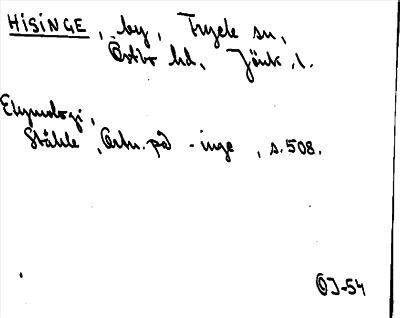 HISINGE, by, Tryde sn,
Östbo hd, Jönk. l.
Etymologi,
Ståhle, Ortn. på -inge, s. 508.
OJ-54